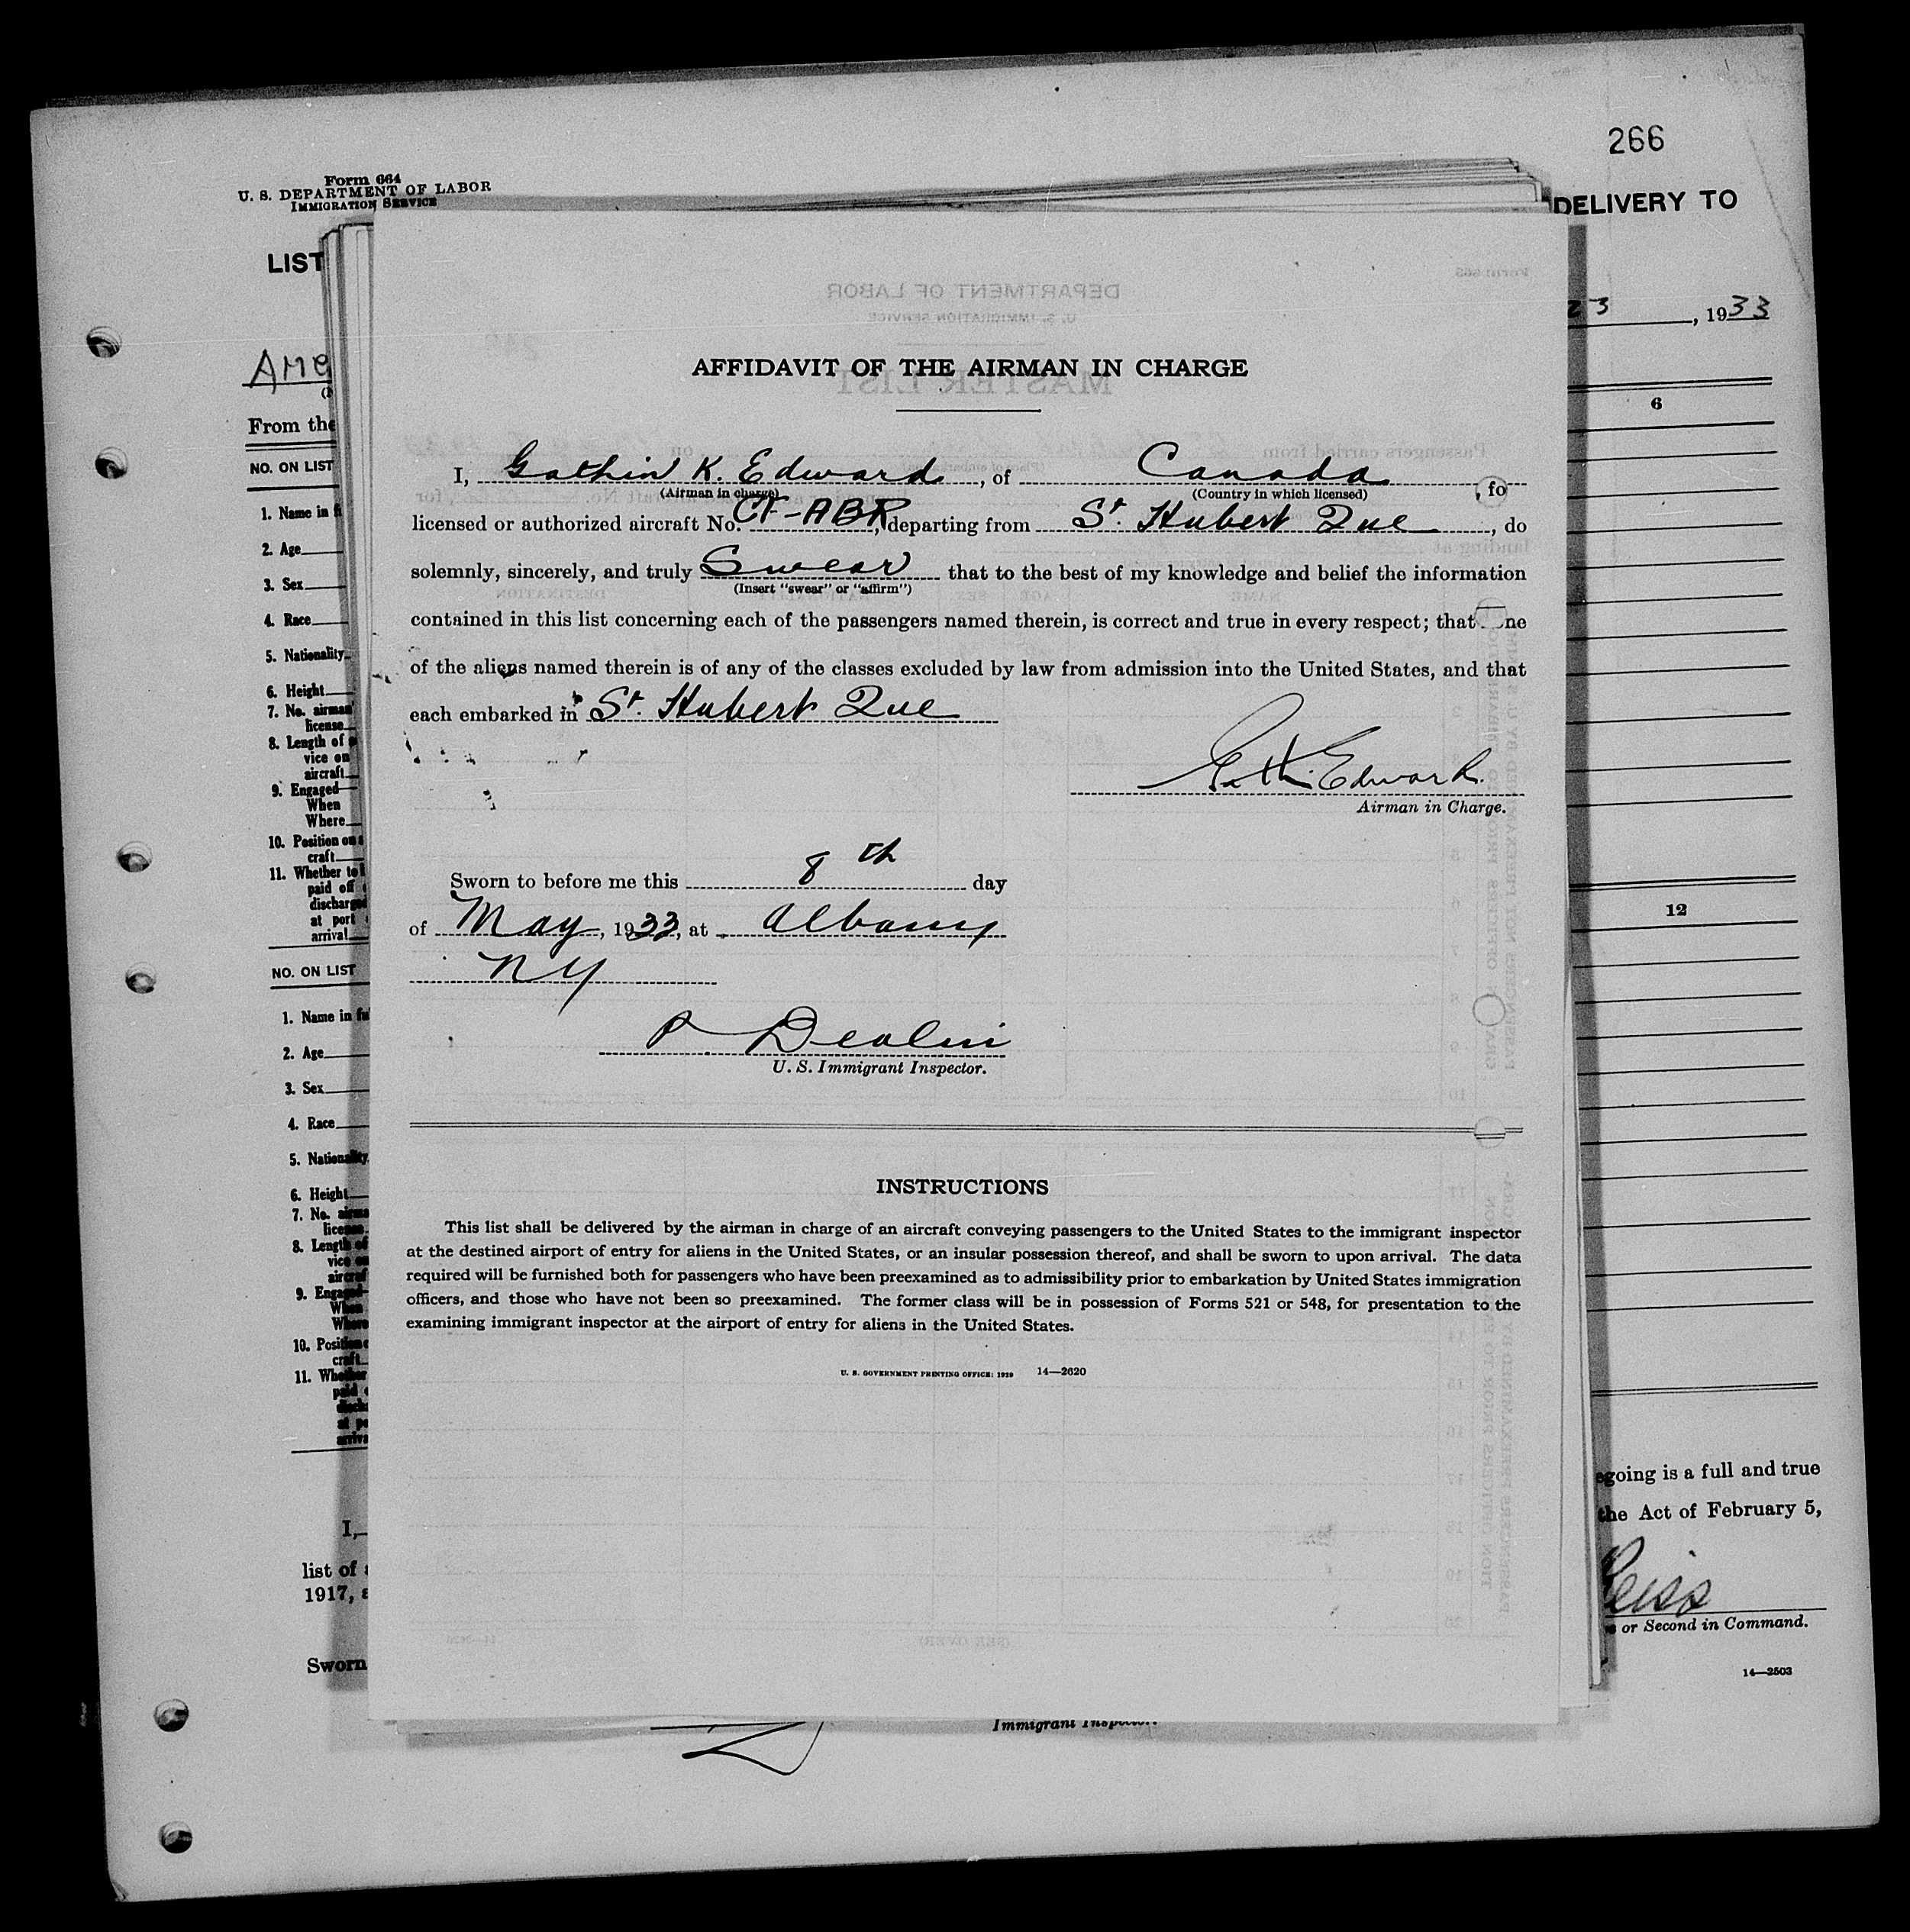 266
Form 664
U. S. DEPARTMENT OF LABOR
IMMIGRATION SERVICE
DELIVERY TO
LIST
23, 1933
From the
6
NO. ON LIST
1. Name in
2. Age
3. Sex
4. Race
5. Nationality
6. Height
7. No. airman
license
8. Length of
vice on
aircraft
9. Engaged
When
Where
10. Position on
craft
11. Whether to
paid off
discharged
at port
arrival
12
NO. ON LIST
1. Name in
2. Age
3. Sex
4. Race
5. Nationality
6. Height
7. No.
license
8. Length of
9. Engaged
When
Where
10.
craft
11. Whether
I,
list of
1917,
Sworn
egoing is a full and true
the Act of February 5,
or Second in Command.
14—2503
Immigrant Inspector.
AFFIDAVIT OF THE AIRMAN IN CHARGE
I, K. Edward, of Canada, fo
(Airman in charge) (Country in which licensed)
licensed or authorized aircraft No. CF-ABR, departing from St. Hubert Que, do
solemnly, sincerely, and truly Swear that to the best of my knowledge and belief the information
(Insert "swear" or "affirm")
contained in this list concerning each of the passengers named therein, is correct and true in every respect; that ne
of the aliens named therein is of any of the classes excluded by law from admission into the United States, and that
each embarked in St. Hubert Que
K. Edward
Airman in Charge.
Sworn to before me this 8th day
of May, 1933, at Albany
NY
P Devlin
U. S. Immigrant Inspector.
INSTRUCTIONS
This list shall be delivered by the airman in charge of an aircraft conveying passengers to the United States to the immigrant inspector
at the destined airport of entry for aliens in the United States, or an insular possession thereof, and shall be sworn to upon arrival. The data
required will be furnished both for passengers who have been preexamined as to admissibility prior to embarkation by United States immigration
officers, and those who have not been so preexamined. The former class will be in possession of Forms 521 or 548, for presentation to the
examining immigrant inspector at the airport of entry for aliens in the United States.
U. S. GOVERNMENT PRINTING OFFICE: 1929 14—2620